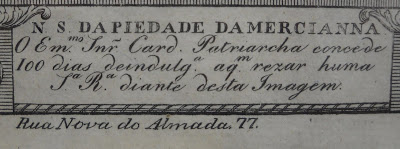 N. S. DA PIEDADE DA MERCIANNA
O Em.mo Snr. Card. Patriarcha concede
100 dias de indulg.a a q.m rezar huma
S.a R.a diante desta Imagem.
Rua Nova do Almada. 77.